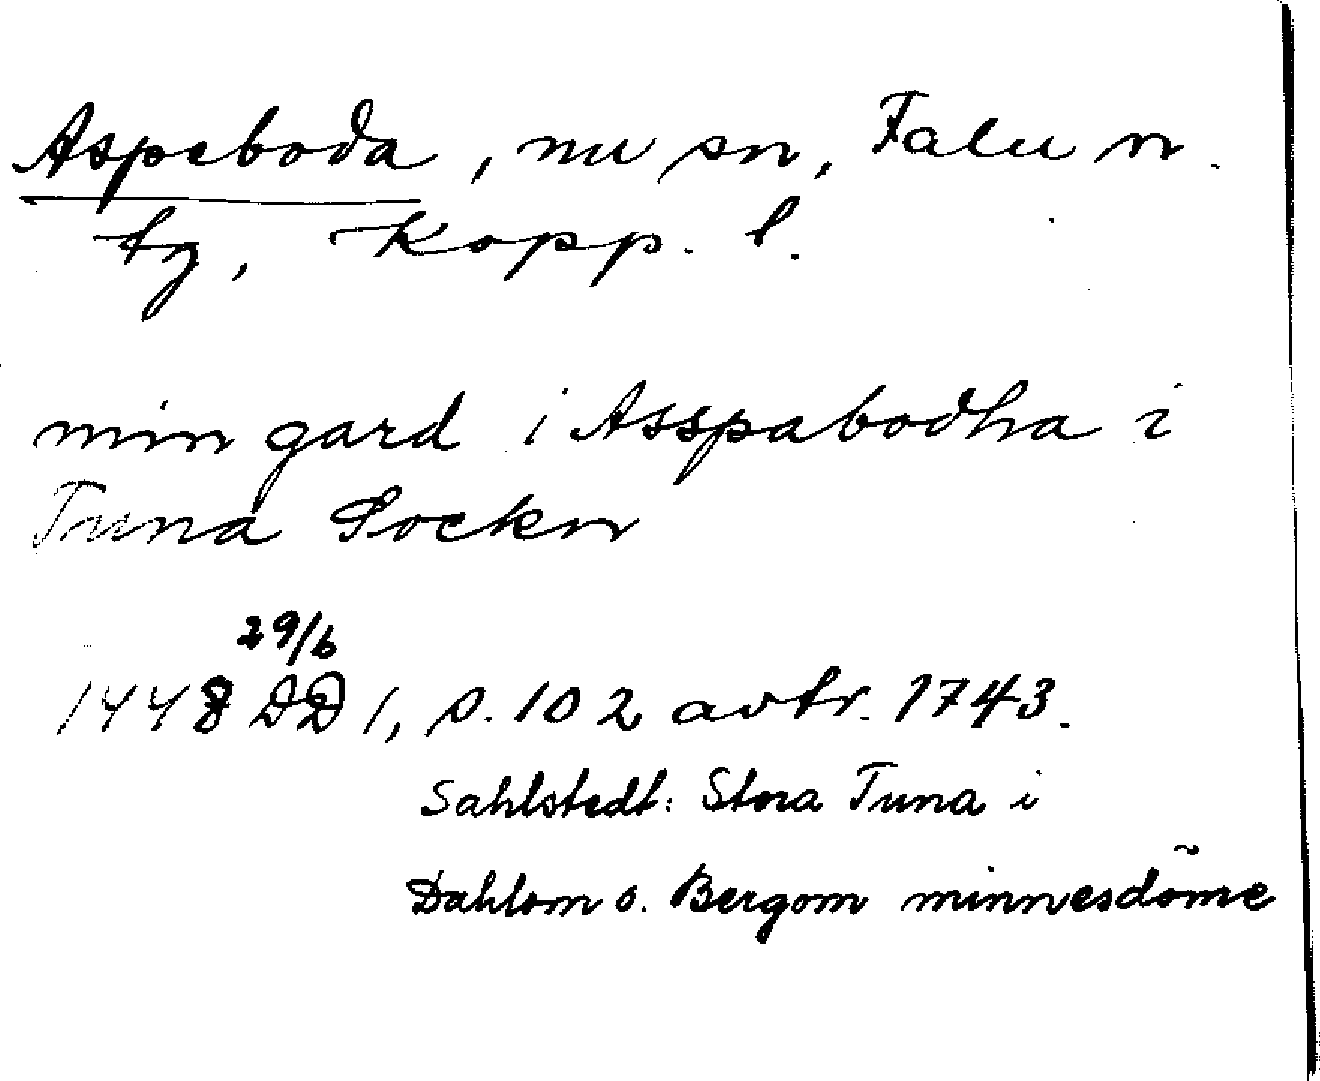 Aspeboda, nu sn, Falu n.
tg, Kopp. l.
min gard i Asspabodha i
Tuna Sockn
29/6
1448 DD 1, s. 102 avtr. 1743.
Sahlstedt: Stora Tuna i
Dahlom o. Bergom minnesdöme